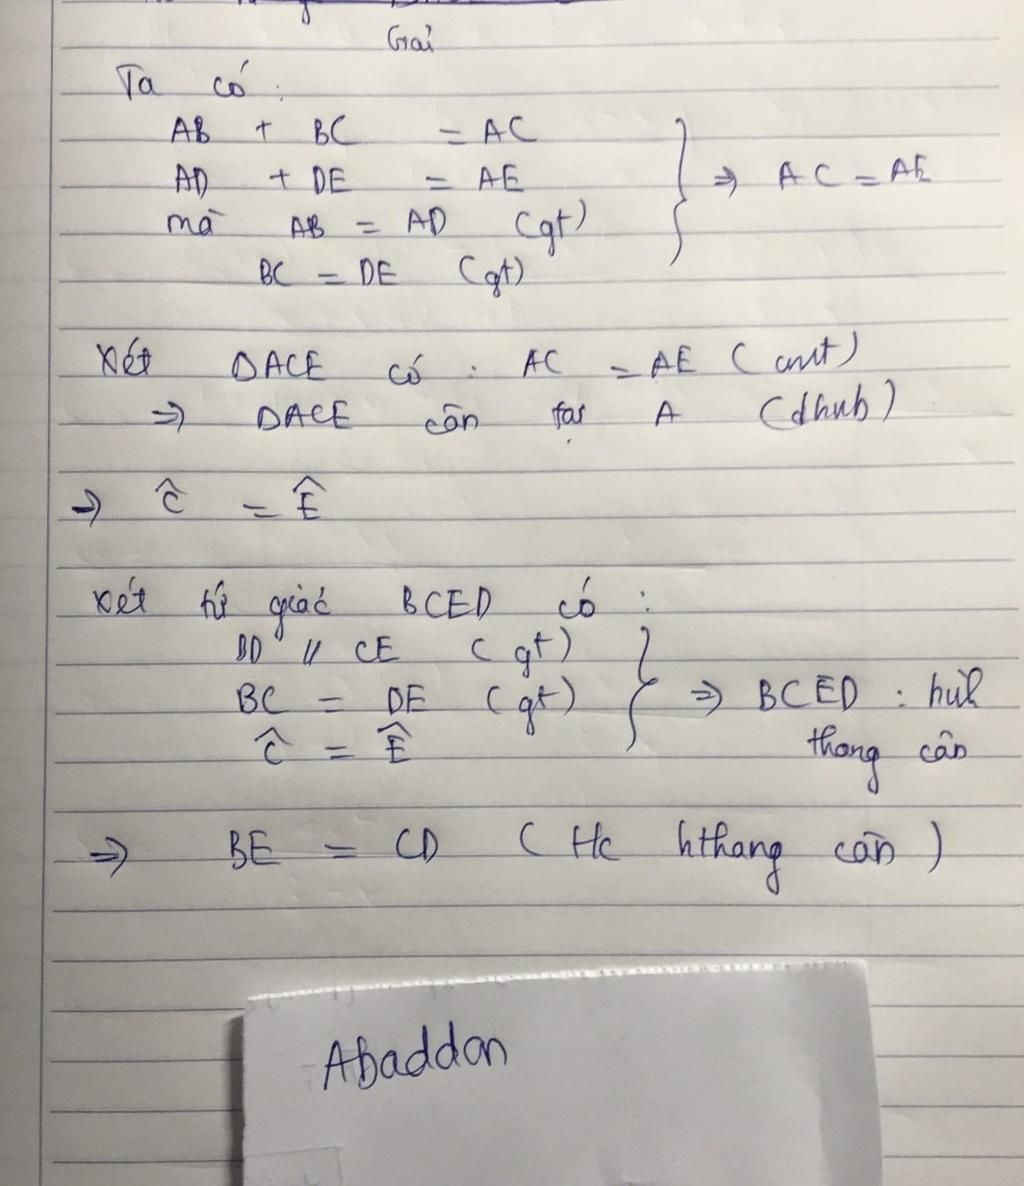 Giải
Ta có :
AB + BC = AC
AD + DE = AE
mà AB = AD (gt)
BC = DE (gt)
⇒ AC = AE
Xét DACE có : AC = AE (cmt)
⇒ DACE cân tại A (dhnb)
⇒ Ĉ = Ê
Xét tứ giác BCED có :
BD // CE (gt)
BC = DE (gt)
Ĉ = Ê
⇒ BCED : hình
thang cân
⇒ BE = CD (t/c hthang cân)
Abaddon